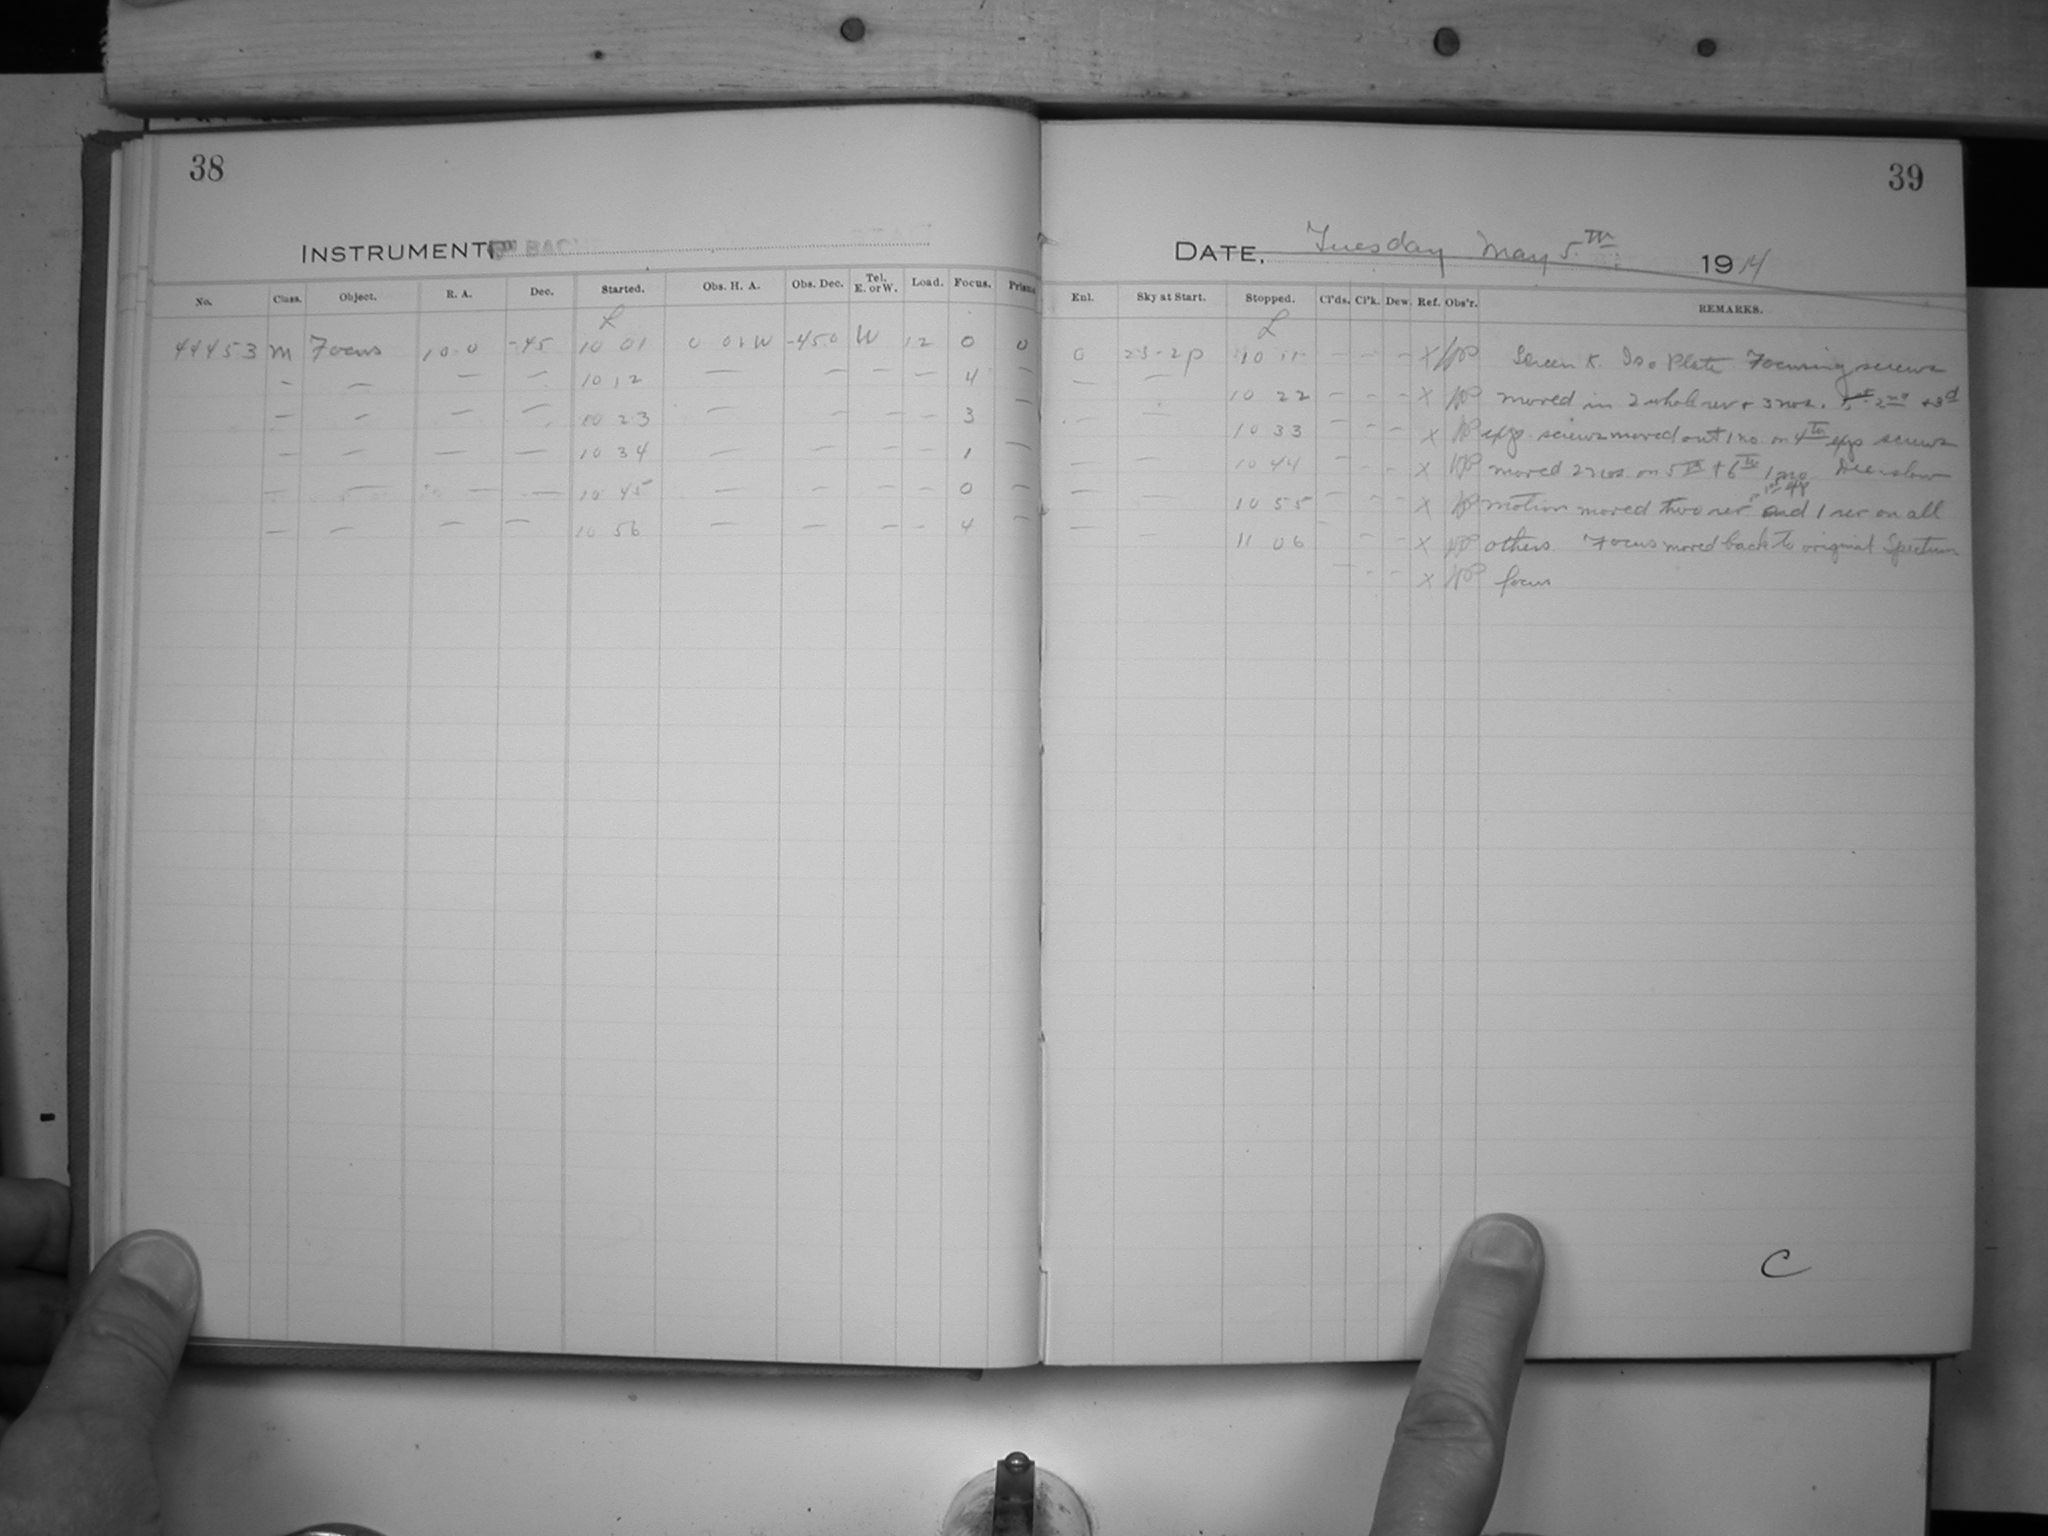 38
INSTRUMENT BAC
No. Class. Object. R. A. Dec. Started. Obs. H. A. Obs. Dec. Tel. E. or W. Load. Focus. Prism
L
44453 M Focus 10 0 -45 10 01 0 01 W -45 0 W 12 0 0
— — — — 10 12 — — — — 4 —
— — — — 10 23 — — — — 3 —
— — — — 10 34 — — — — 1 —
— — — — 10 45 — — — — 0 —
— — — — 10 56 — — — — 4 —
39
DATE, Tuesday May 5th 1914
Enl. Sky at Start. Stopped. Cl'ds. Cl'k. Dew. Ref. Obs'r. REMARKS.
L
0 23-2p 10 11 — — — X Screen K. Iso Plate Focusing screws
— — 10 22 — — — X moved in 2 whole rev + 3 nos. 2nd + 3d
— — 10 33 — — — X exp. screws moved out 1 no. on 4th exp screws
— — 10 44 — — — X moved 2 nos. on 5th + 6th 1 no Dec slow
— — 10 55 — — — X motion moved two rev on 1st exp and 1 rev on all
— — 11 06 — — X others. Focus moved back to original Spectrum
— — — X focus
C